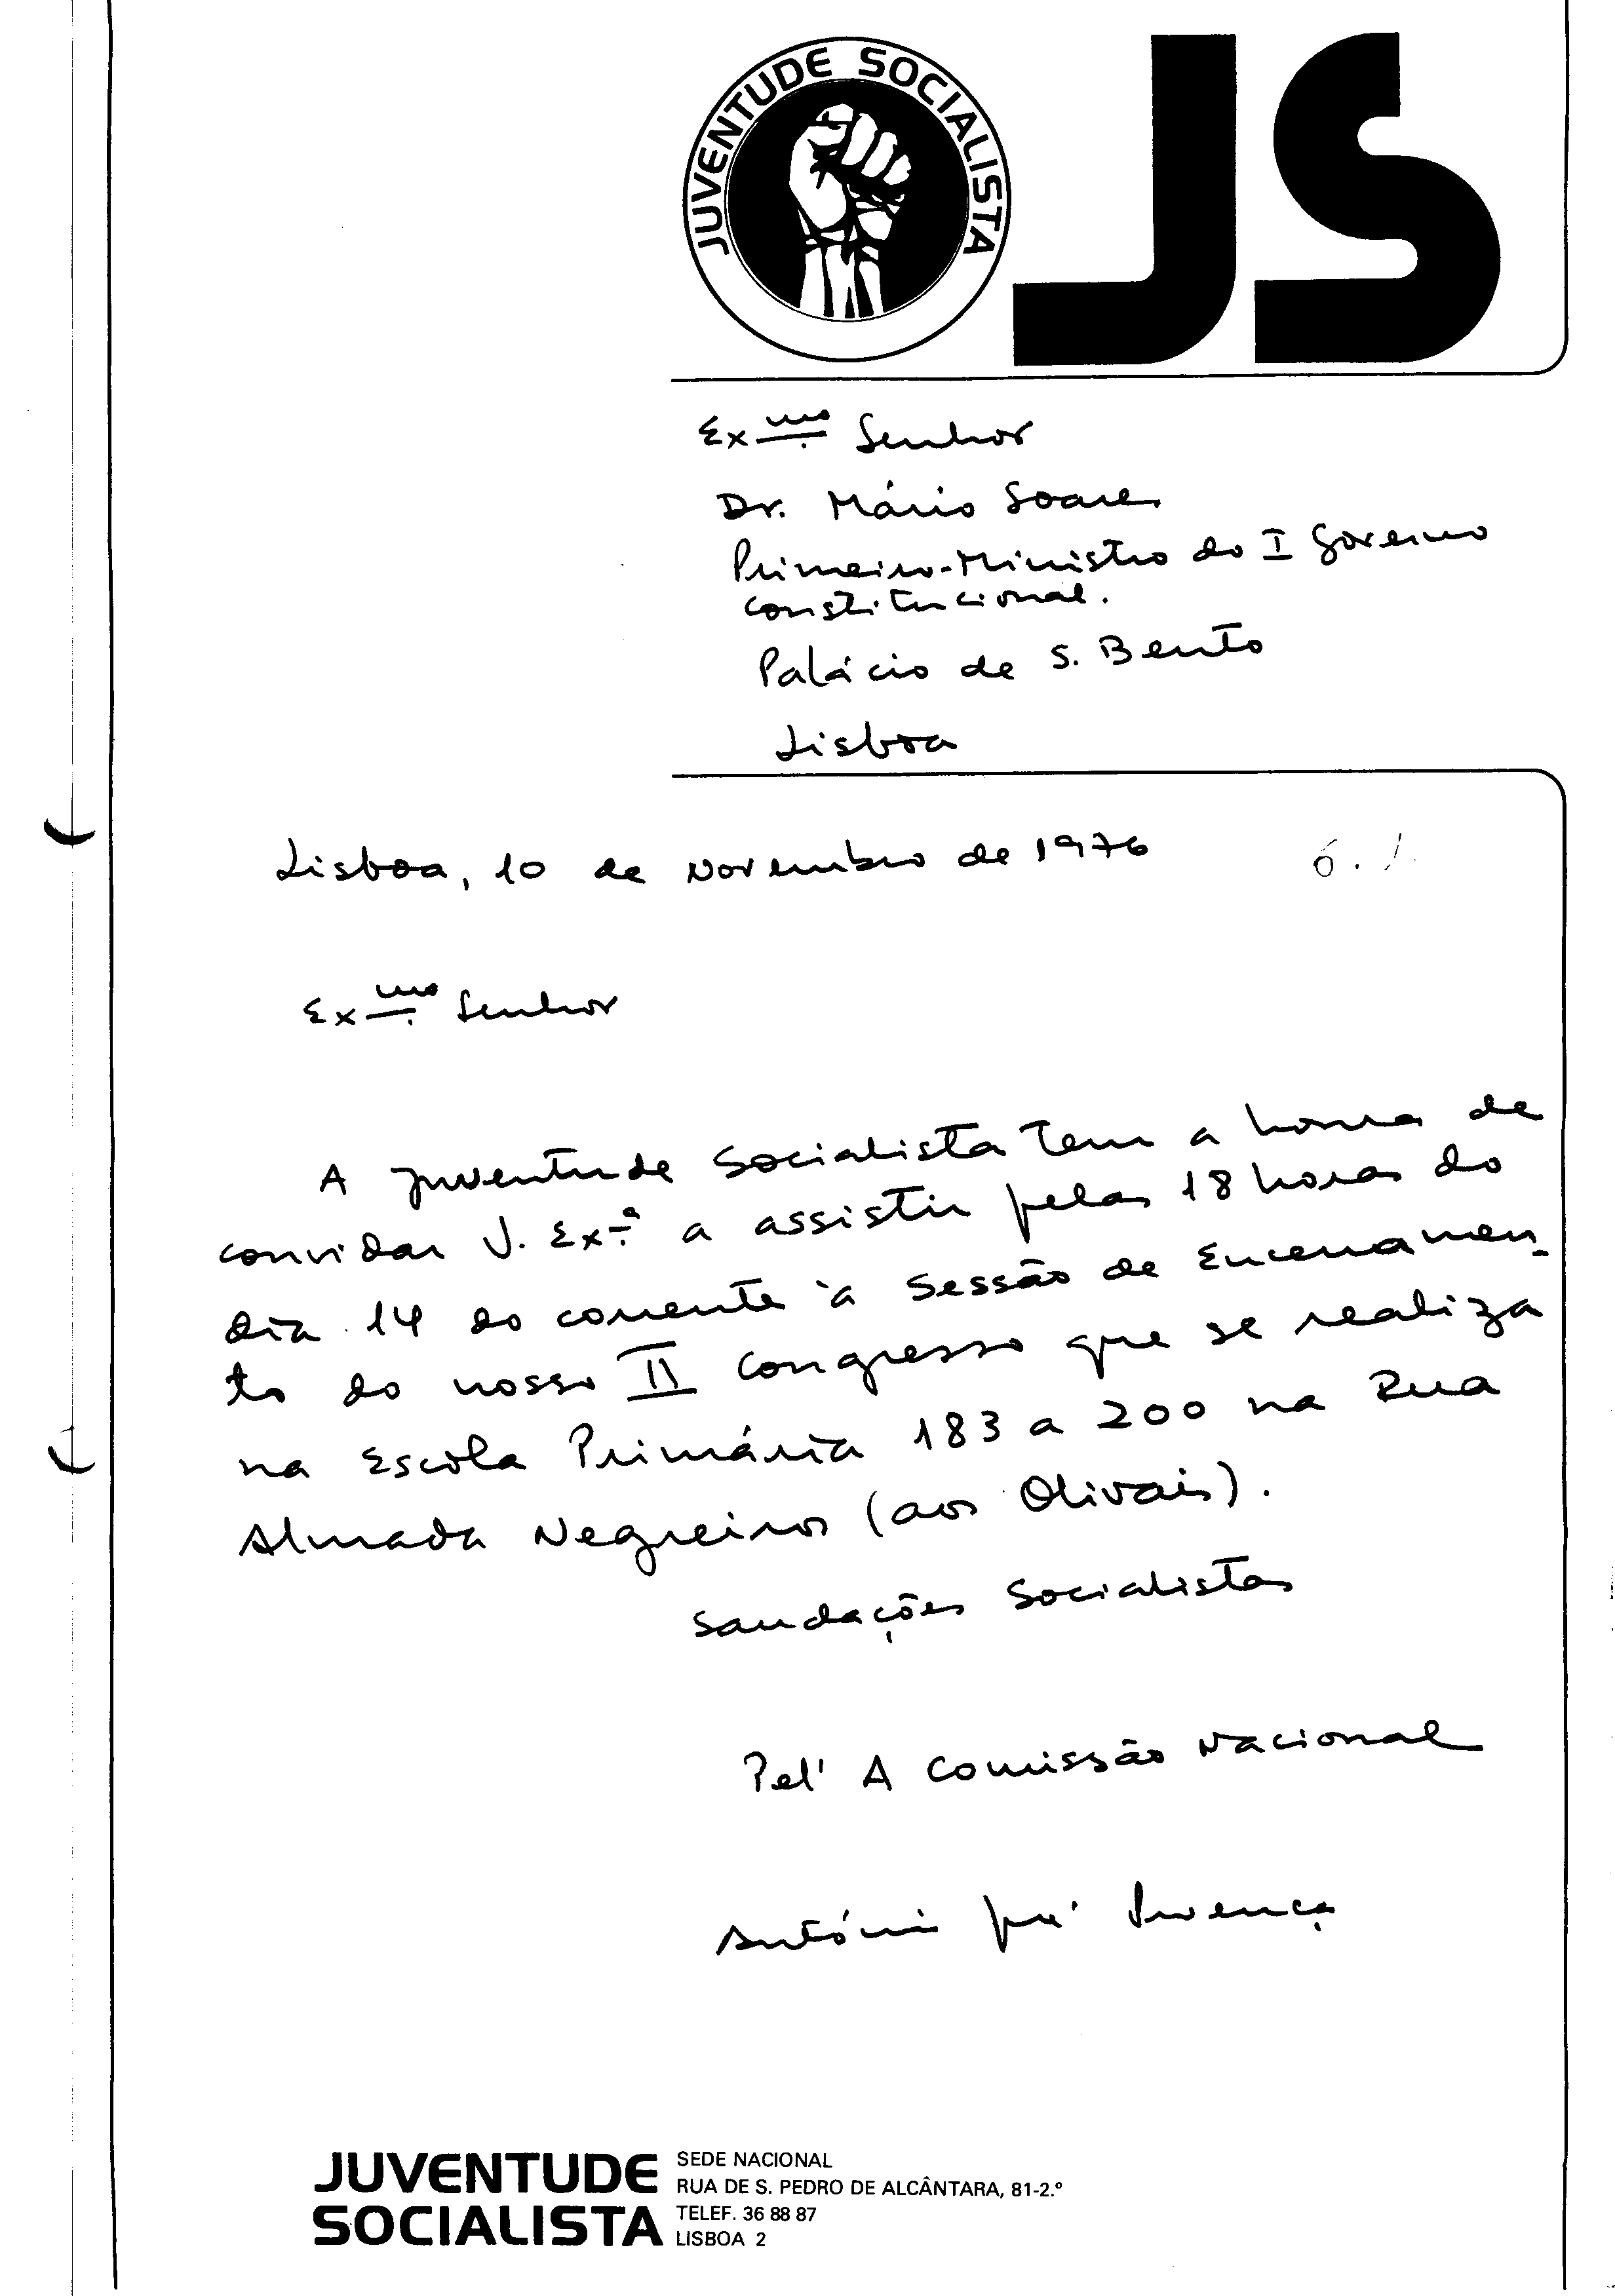 JUVENTUDE SOCIALISTA
JS
Exmo Senhor
Dr. Mário Soares
Primeiro-Ministro do I Governo
Constitucional.
Palácio de S. Bento
Lisboa
Lisboa, 10 de Novembro de 1976
Exmo Senhor
A Juventude Socialista tem a honra de
convidar V. Ex.ª a assistir pelas 18 horas do
dia 14 do corrente à Sessão de Encerramen-
to do nosso II Congresso que se realiza
na Escola Primária 183 a 200 na Rua
Almada Negreiros (aos Olivais).
Saudações Socialistas
Pel' A Comissão Nacional
António José Proença
JUVENTUDE
SOCIALISTA
SEDE NACIONAL
RUA DE S. PEDRO DE ALCÂNTARA, 81-2.º
TELEF. 36 88 87
LISBOA 2